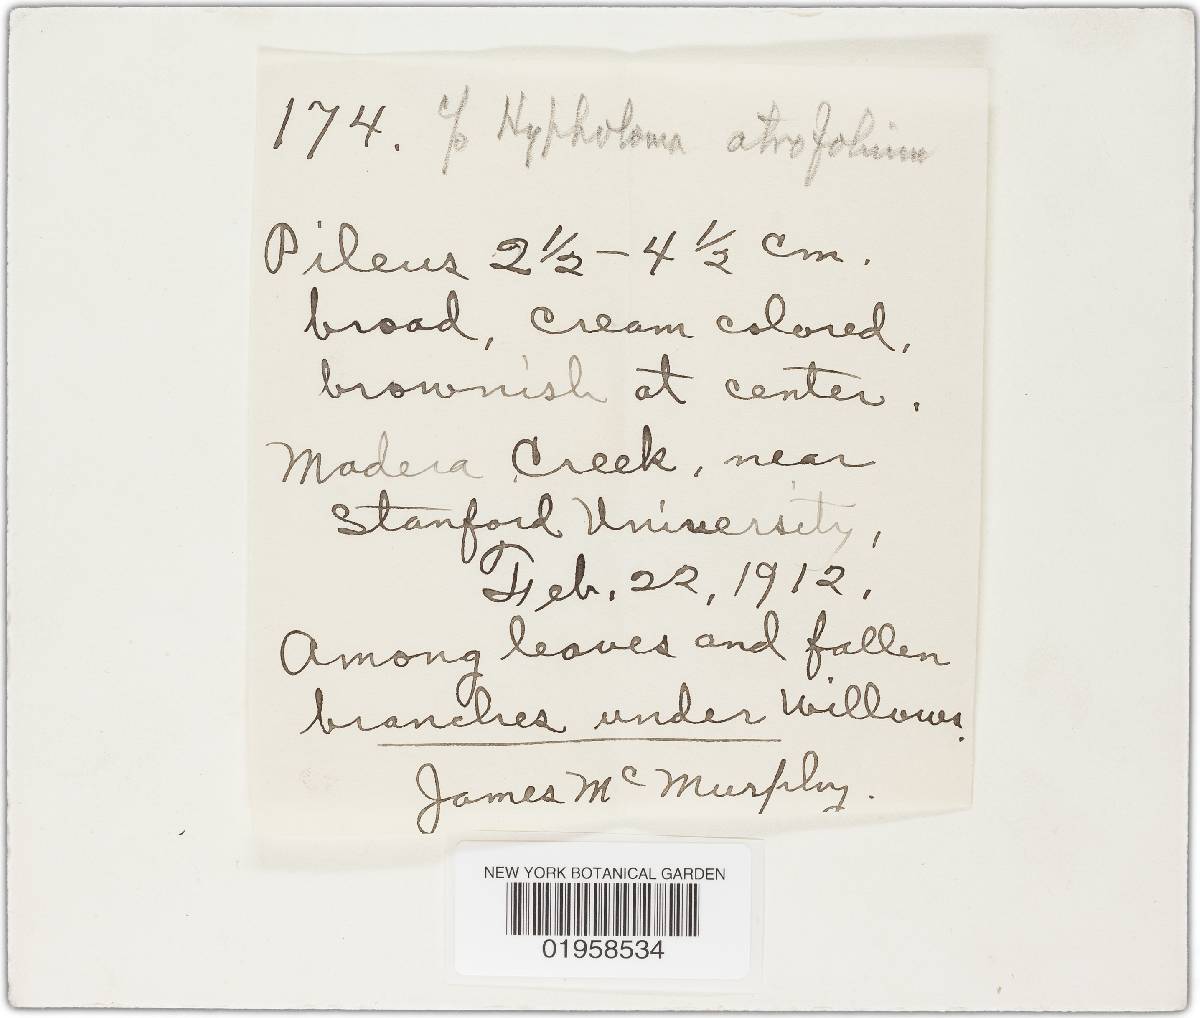 174. cf Hypholoma atrofolium
Pileus 2½ - 4½ cm.
broad, cream colored,
brownish at center.
Madera Creek, near
Stanford University,
Feb. 22, 1912.
Among leaves and fallen
branches under willows.
James McMurphy.
NEW YORK BOTANICAL GARDEN
01958534